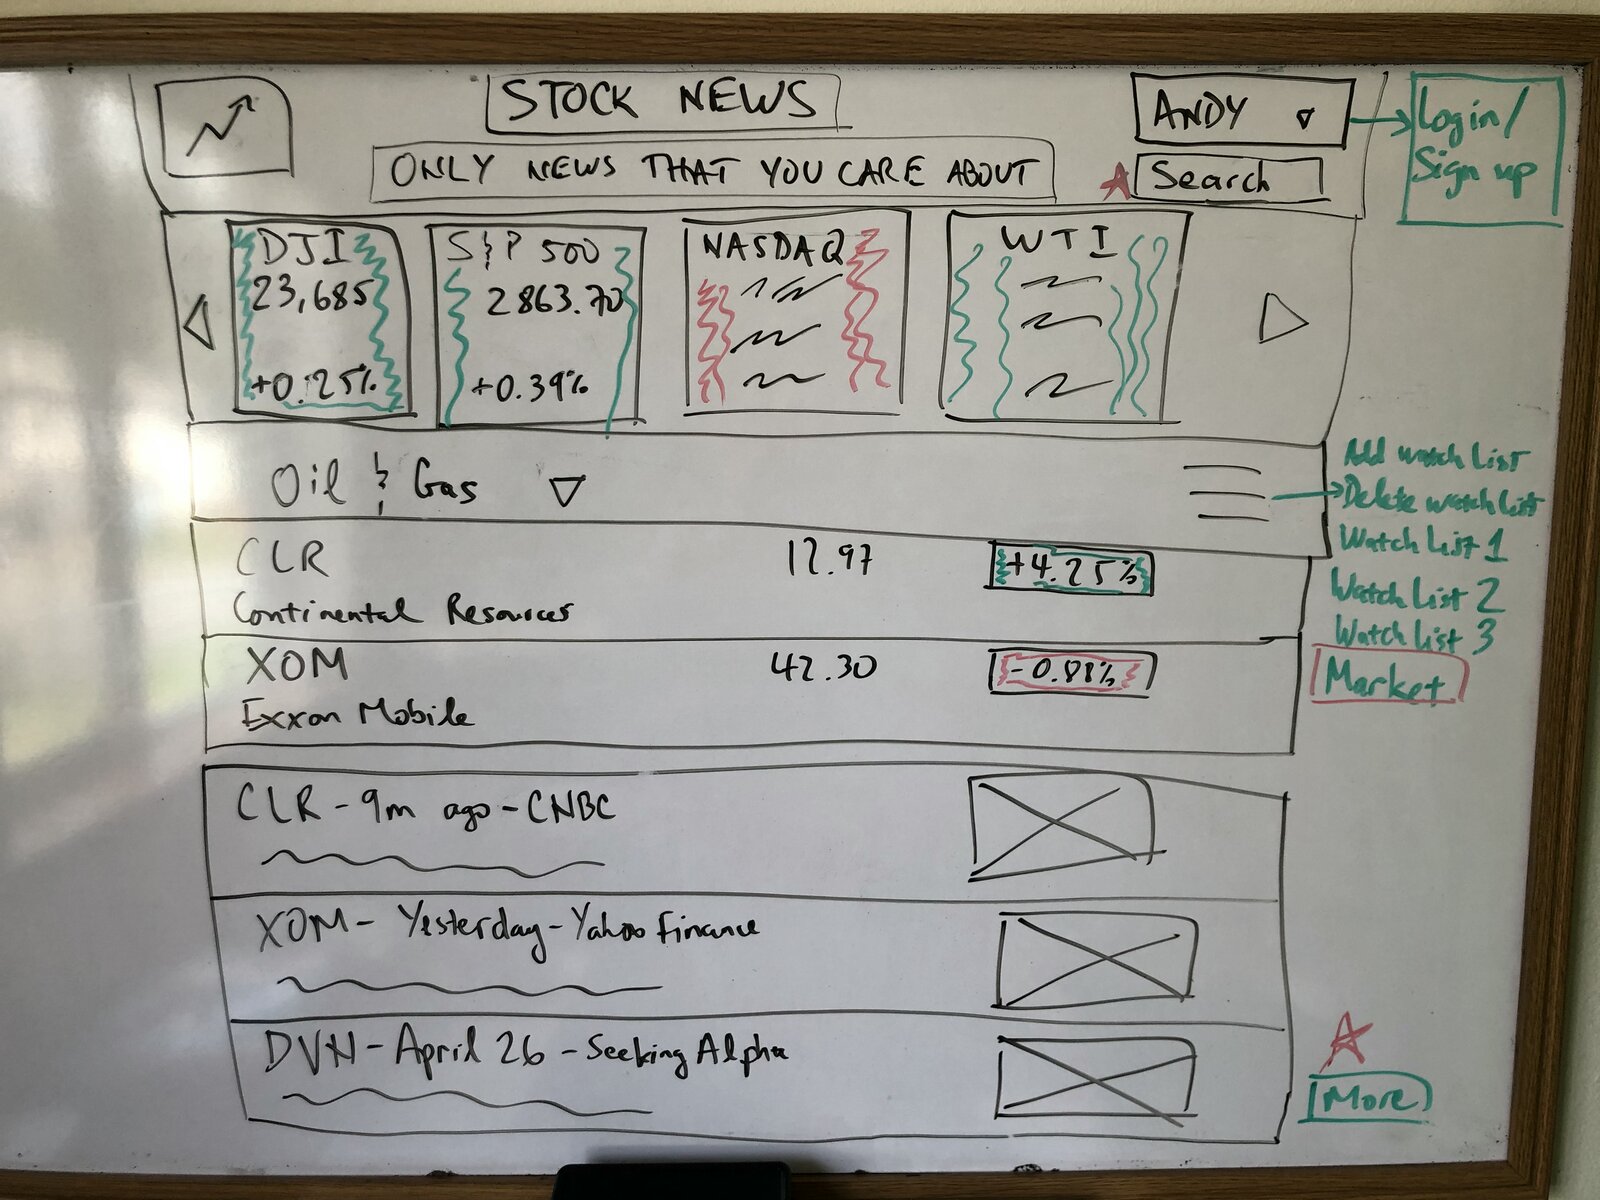 STOCK NEWS
ANDY
Login/
Sign up
ONLY NEWS THAT YOU CARE ABOUT
Search
DJI
23,685
+0.25%
S&P 500
2863.70
+0.39%
NASDAQ
WTI
Oil & Gas
Add watch list
Delete watch list
Watch List 1
Watch List 2
Watch list 3
Market
CLR
12.97
+4.25%
Continental Resources
XOM
42.30
-0.88%
Exxon Mobile
CLR - 9m ago - CNBC
XOM - Yesterday - Yahoo Finance
DVN - April 26 - Seeking Alpha
More